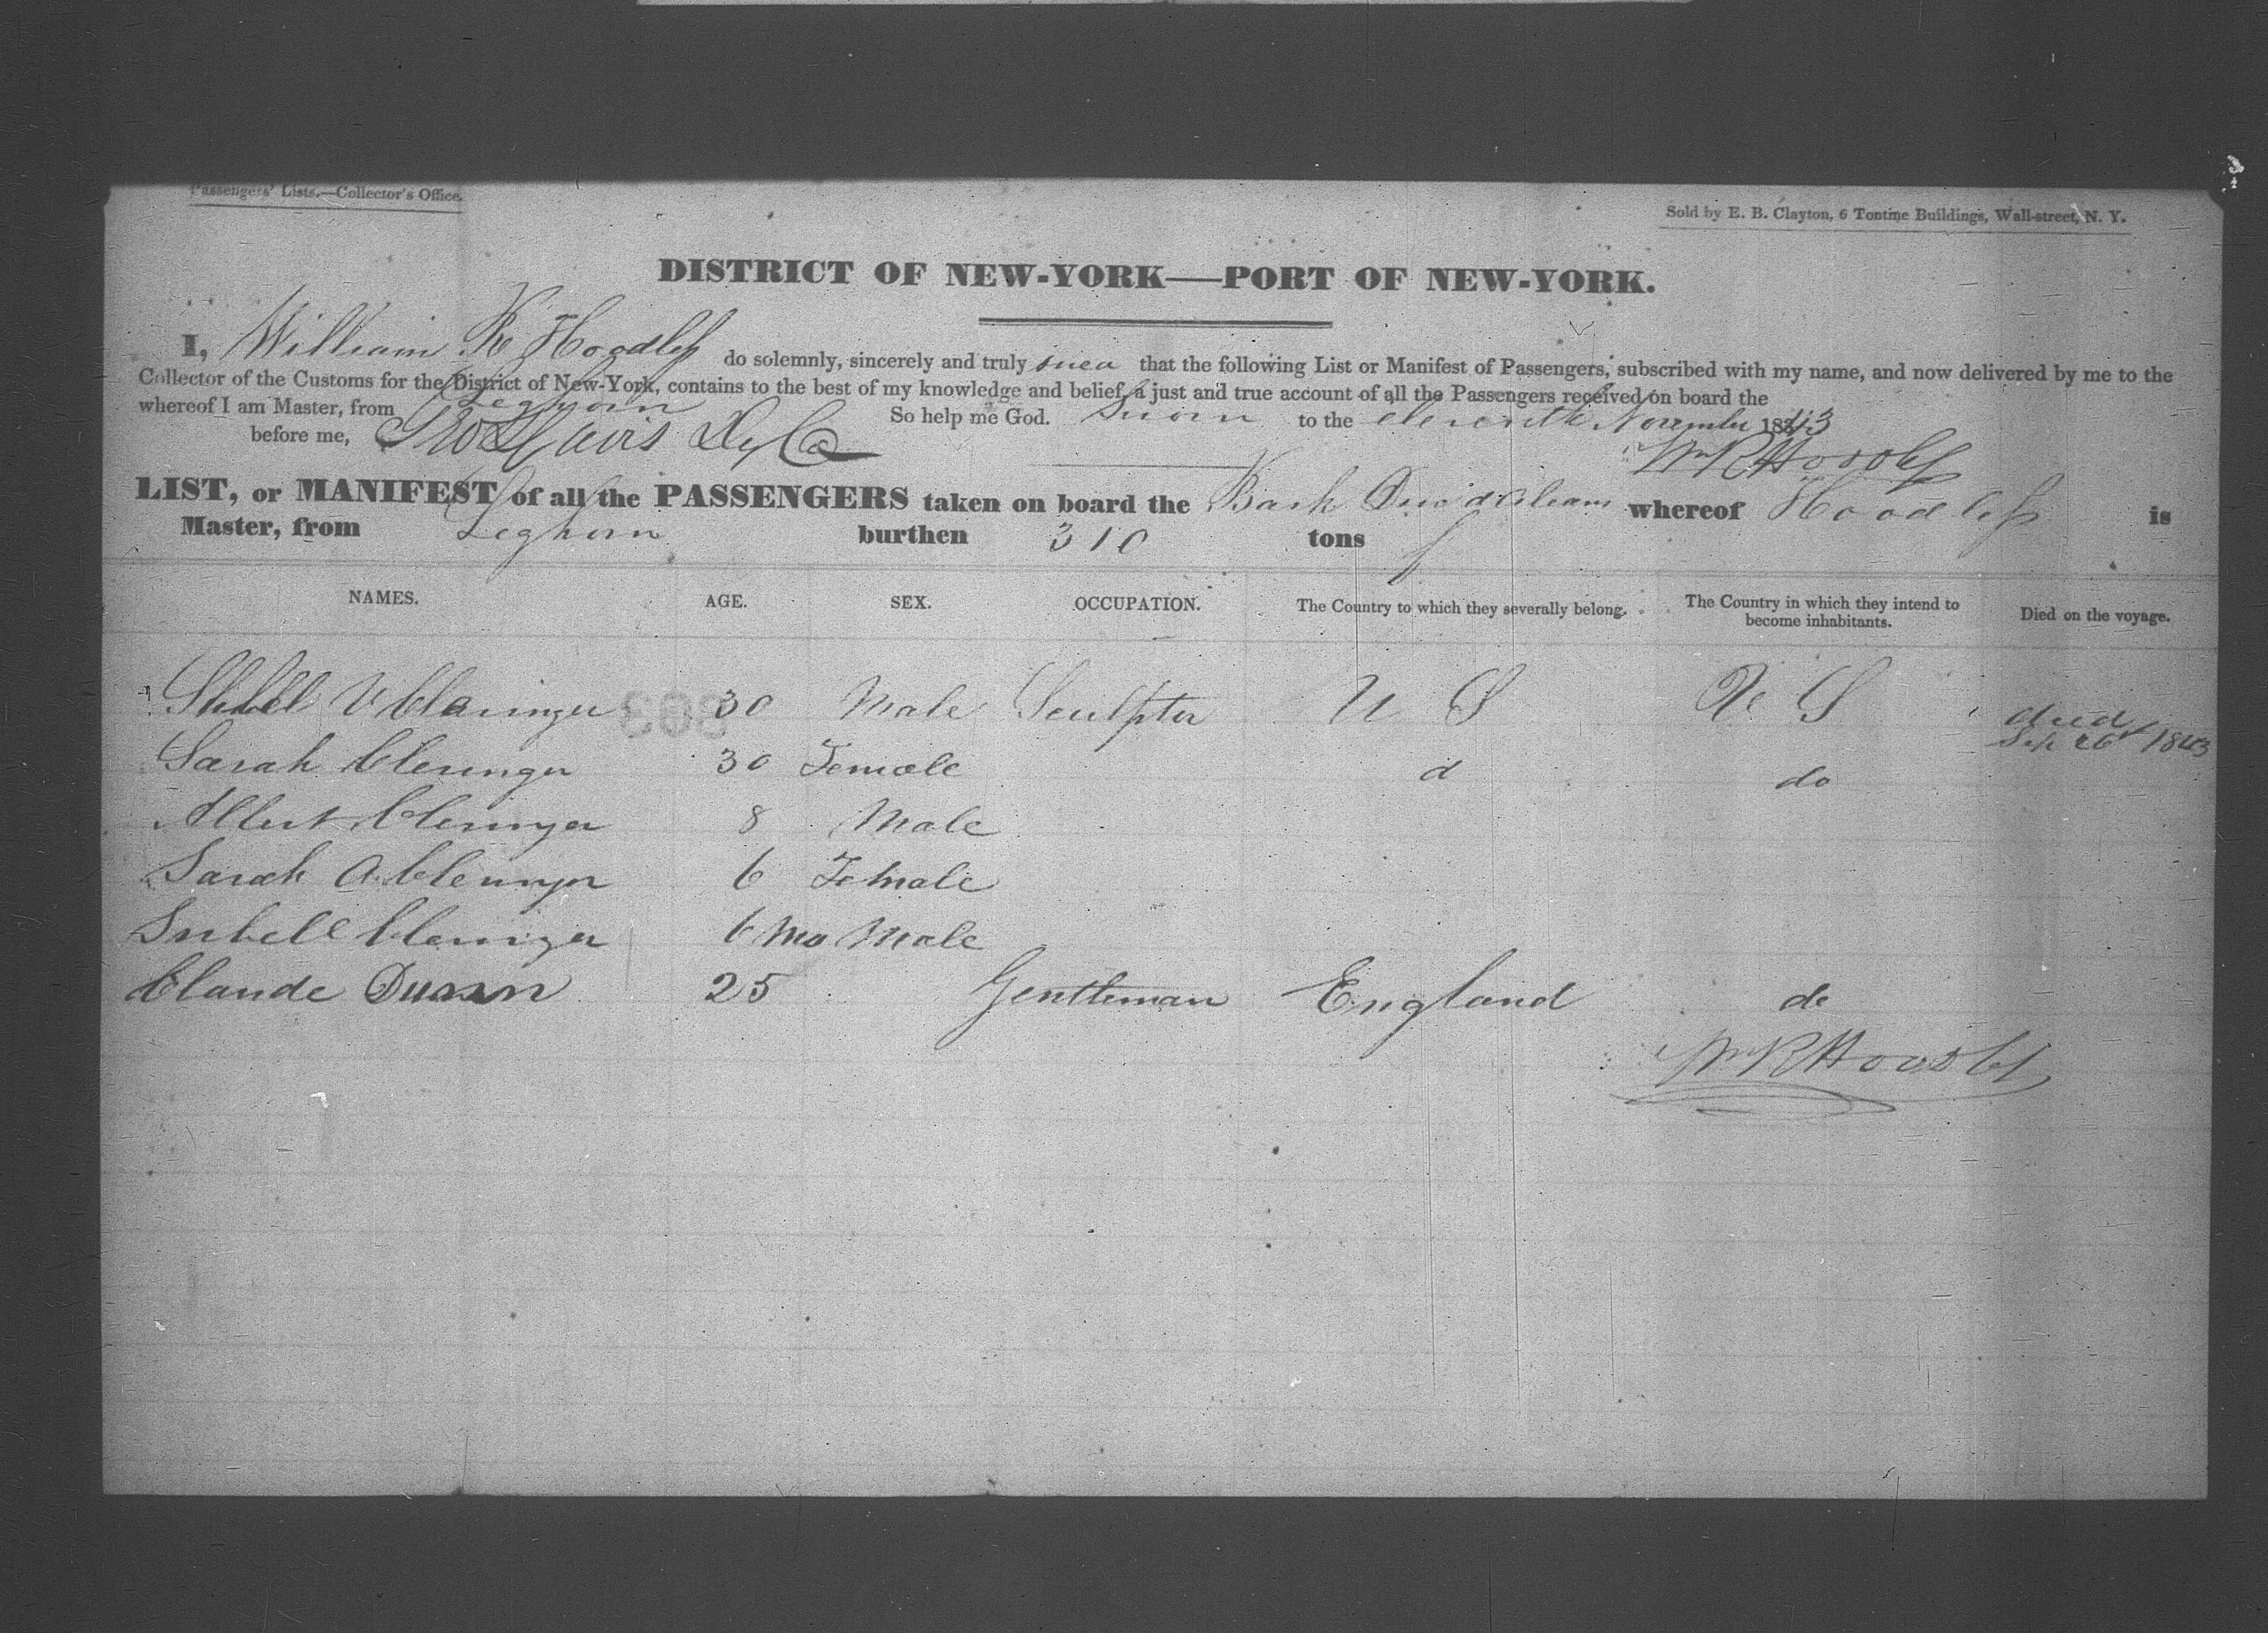 Passengers' Lists.—Collector's Office.
Sold by E. B. Clayton, 6 Tontine Buildings, Wall-street, N. Y.
DISTRICT OF NEW-YORK—PORT OF NEW-YORK.
I, William R Hoodless do solemnly, sincerely and truly that the following List or Manifest of Passengers, subscribed with my name, and now delivered by me to the
Collector of the Customs for the District of New-York, contains to the best of my knowledge and belief, a just and true account of all the Passengers received on board the
whereof I am Master, from Leghorn So help me God. Sworn to the eleventh November 1843
before me, Davis Dy Co
Wm R Hoodless
LIST, or MANIFEST of all the PASSENGERS taken on board the Bark whereof Hoodless is
Master, from Leghorn burthen 310 tons
NAMES. AGE. SEX. OCCUPATION. The Country to which they severally belong. The Country in which they intend to become inhabitants. Died on the voyage.
V Clevinger 30 Male Sculptor U S U S died Sep 26 1843
Sarah Clevinger 30 Female d do
Albert Clevinger 8 Male
Sarah A. Clevinger 6 Female
Clevinger 6 Mo Male
Claude 25 Gentleman England do
Wm R Hoodless